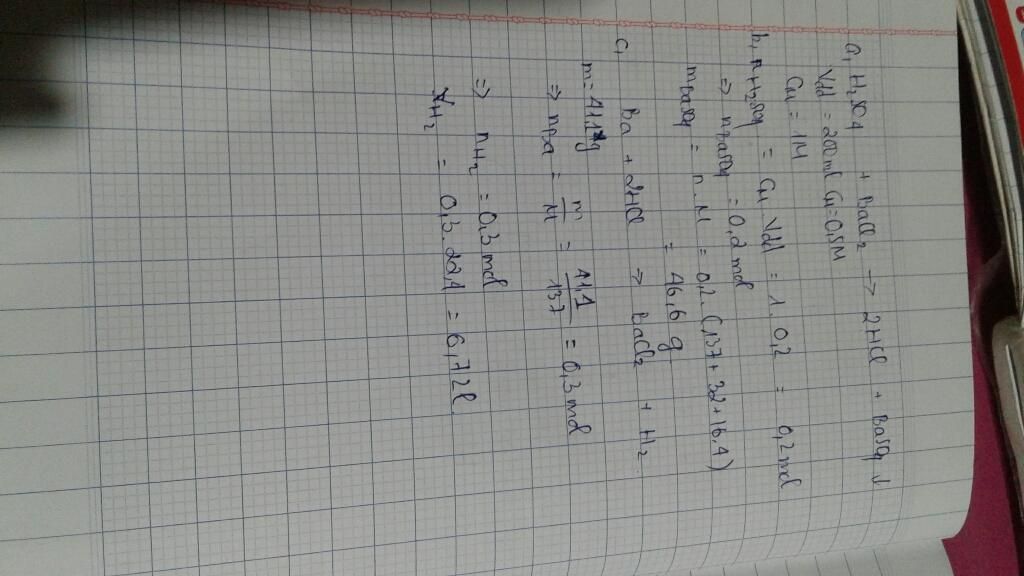 a, H₂SO₄ + BaCl₂ → 2HCl + BaSO₄ ↓
Vdd = 200ml CM = 0,5M
CM = 1M
b, nH₂SO₄ = CM. Vdd = 1. 0,2 = 0,2 mol
=> nBaSO₄ = 0,2 mol
mBaSO₄ = n. M = 0,2. (137 + 32 + 16.4)
= 46,6 g
c, Ba + 2HCl => BaCl₂ + H₂
m = 41,1g
=> nBa = m/M = 41,1/137 = 0,3 mol
=> nH₂ = 0,3 mol
VH₂ = 0,3. 22,4 = 6,72l